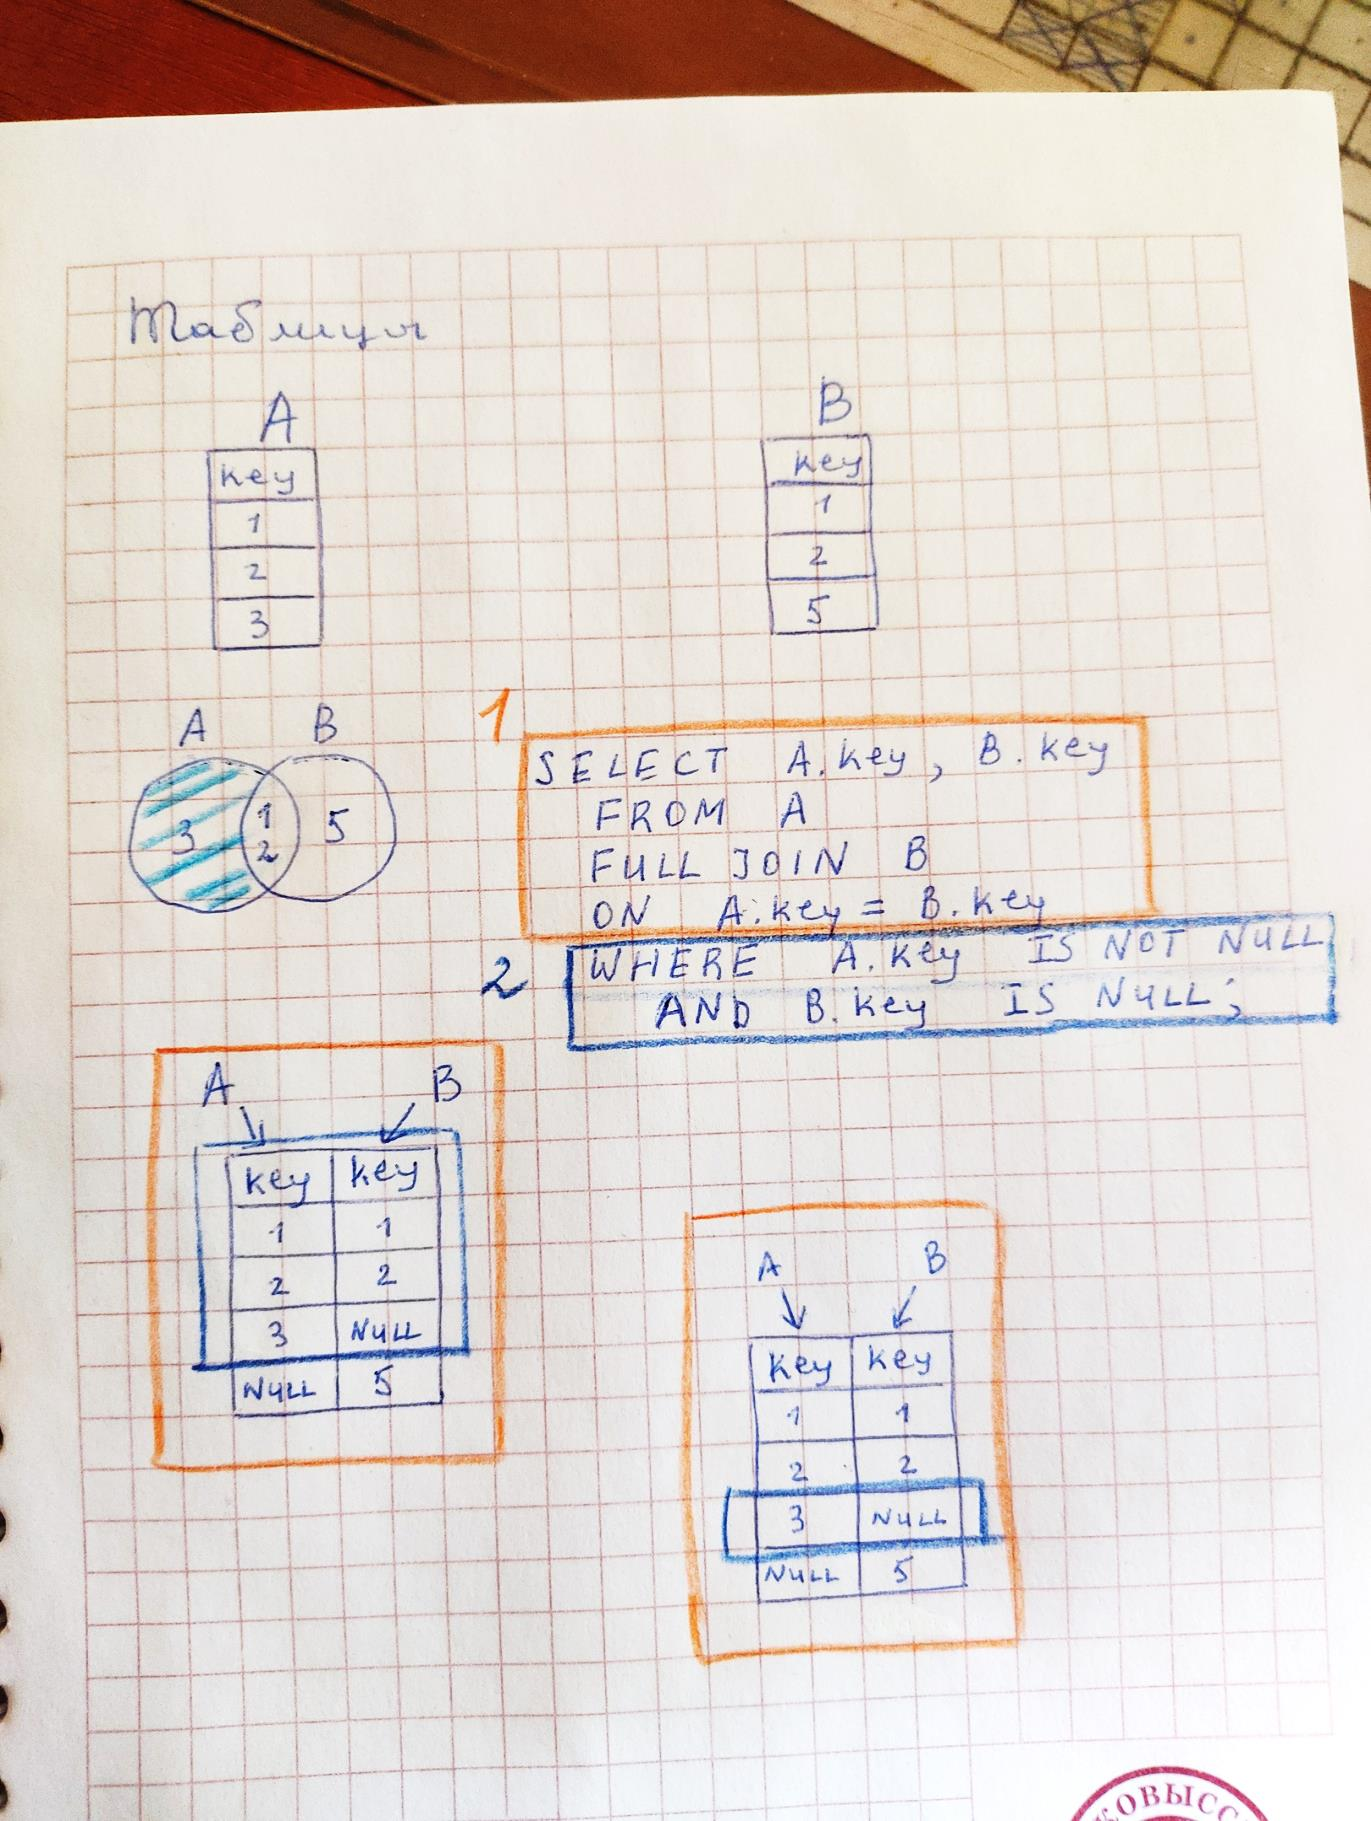 Таблицы
A B
key key
1 1
2 2
3 5
A B
3 1 2 5
1
SELECT A.key, B.key
FROM A
FULL JOIN B
ON A.key = B.key
2
WHERE A.key IS NOT NULL
AND B.key IS NULL;
A B
key key
1 1
2 2
3 NULL
NULL 5
A B
key key
1 1
2 2
3 NULL
NULL 5